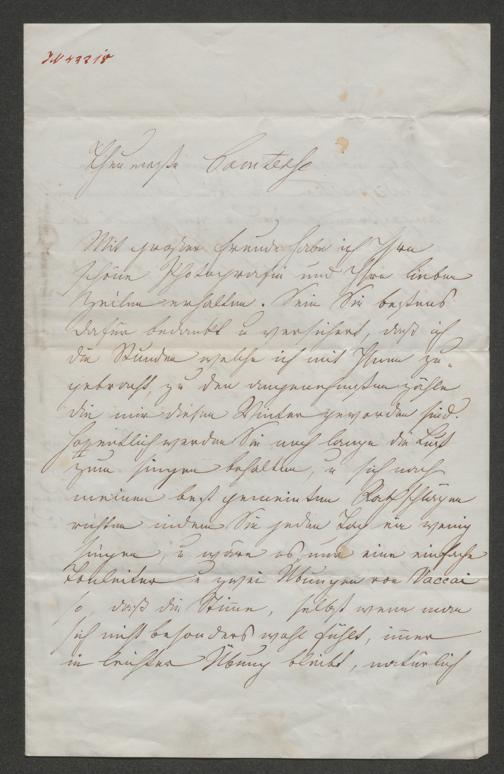 IN 42218
Theuerste Comtesse
Mit großer Freude habe ich Ihre
schöne Photografie und Ihre lieben
Zeilen erhalten. Sein Sie bestens
dafür bedankt u versichert, daß ich
die Stunden welche ich mit Ihnen zu-
gebracht, zu den angenehmsten zähle
die mir diesen Winter geworden sind.
Hoffentlich werden Sie noch lange die Lust
zum singen behalten, u sich nach
meinen best gemeinten Rathschlägen
richten indem Sie jeden Tag ein wenig
singen, u wäre es nur eine einfache
Tonleiter u zwei Übungen von Vaccai
so, daß die Stimme, selbst wenn man
sich nicht besonders wohl fühlt, immer
in leichter Übung bleibt, natürlich